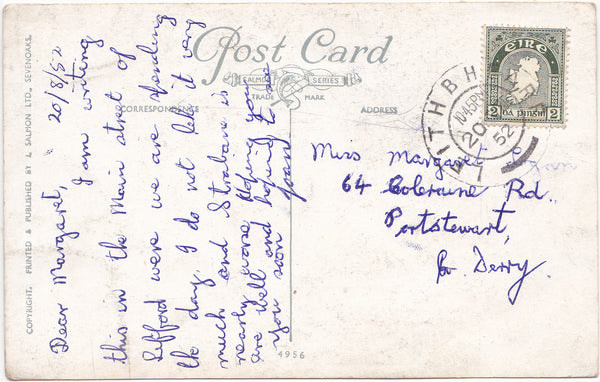 Post Card
SALMON SERIES
TRADE MARK
CORRESPONDENCE
ADDRESS
COPYRIGHT. PRINTED & PUBLISHED BY J. SALMON LTD., SEVENOAKS.
4956
20/8/52
Dear Margaret,
I am writing
this in the Main street of
Lifford were we are spending
the day. I do not like it very
much and Strabane is
nearly worse. Hoping you
are well and hoping to see
you soon
Joan
ÉIRE
2 DÁ PINGIN 2
20
52
Miss Margaret
64 Coleraine Rd.,
Portstewart,
Co Derry.